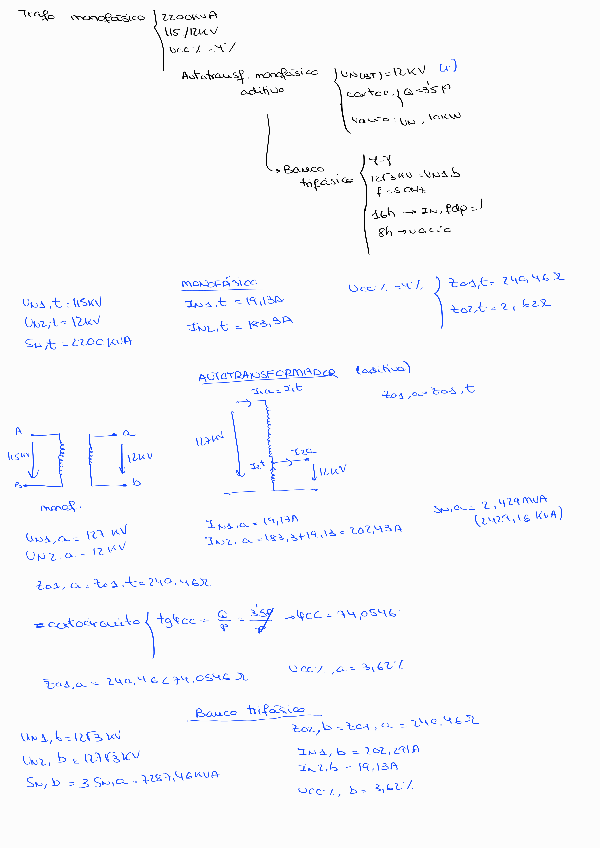 Trafo monofásico { 2200KVA
115/12KV
Ucc% = 4%
Autotransf. monofásico aditivo { UN(BT) = 12KV (1)
cortoc. { Q = 3'5P
vacío: UN, 10KW
→ Banco trifásico { Y-Y
12√3 KV = UN1,b
f = 50Hz
16h → IN, fdp = 1
8h → vacío
MONOFÁSICO
UN1,t = 115KV
UN2,t = 12KV
SN,t = 2200KVA
IN1,t = 19,13A
IN2,t = 183,3A
Ucc% = 4% { Z01,t = 240,46Ω
Z02,t = 2,62Ω
AUTOTRANSFORMADOR (aditivo)
I1a = I1t
Z01,a = Z01,t
A a
115KV 12KV
B b
monof.
127KV
I2t I2a
12KV
UN1,a = 127 KV
UN2,a = 12KV
IN1,a = 19,13A
IN2,a = 183,3+19,13 = 202,43A
SN,a = 2,429MVA
(2429,16 KVA)
Z01,a = Z01,t = 240,46Ω
= cortocircuito { tgφcc = Q/P = 3'5P/P → φcc = 74,0546
Z01,a = 240,46<74,0546 Ω
Ucc%,a = 3,62%
Banco trifásico
UN1,b = 12√3 KV
UN2,b = 127√3 KV
SN,b = 3SN,a = 7287,46KVA
Z02,b = Z01,a = 240,46Ω
IN1,b = 202,291A
IN2,b = 19,13A
Ucc%,b = 3,62%